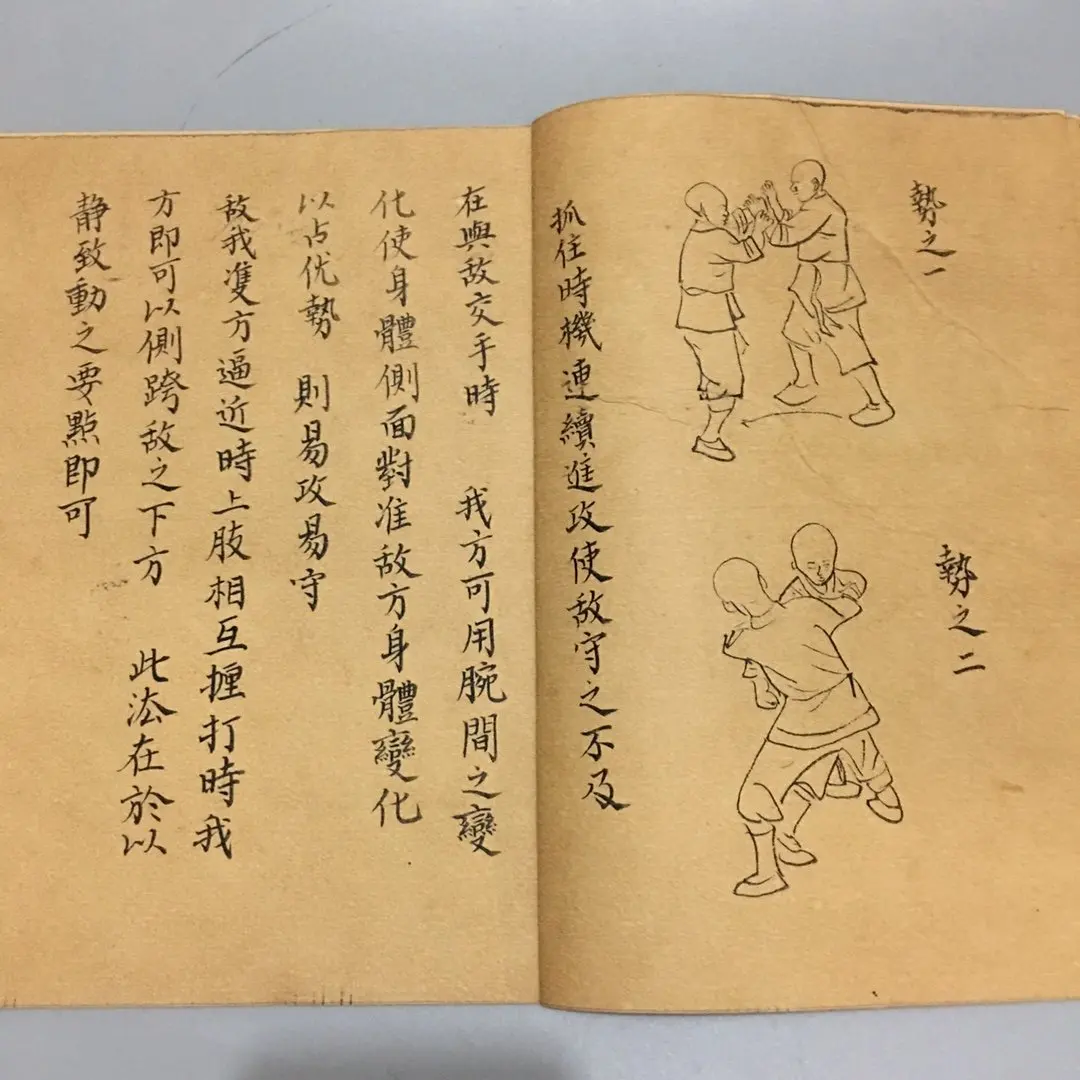 勢之一
勢之二
抓住時機連續進攻使敌守之不及
在與敌交手時 我方可用腕間之變
化使身體側面對准敌方身體變化
以占优勢 則易攻易守
敌我雙方逼近時上肢相互捶打時我
方即可以側跨敌之下方 此法在於以
静致動之要點即可